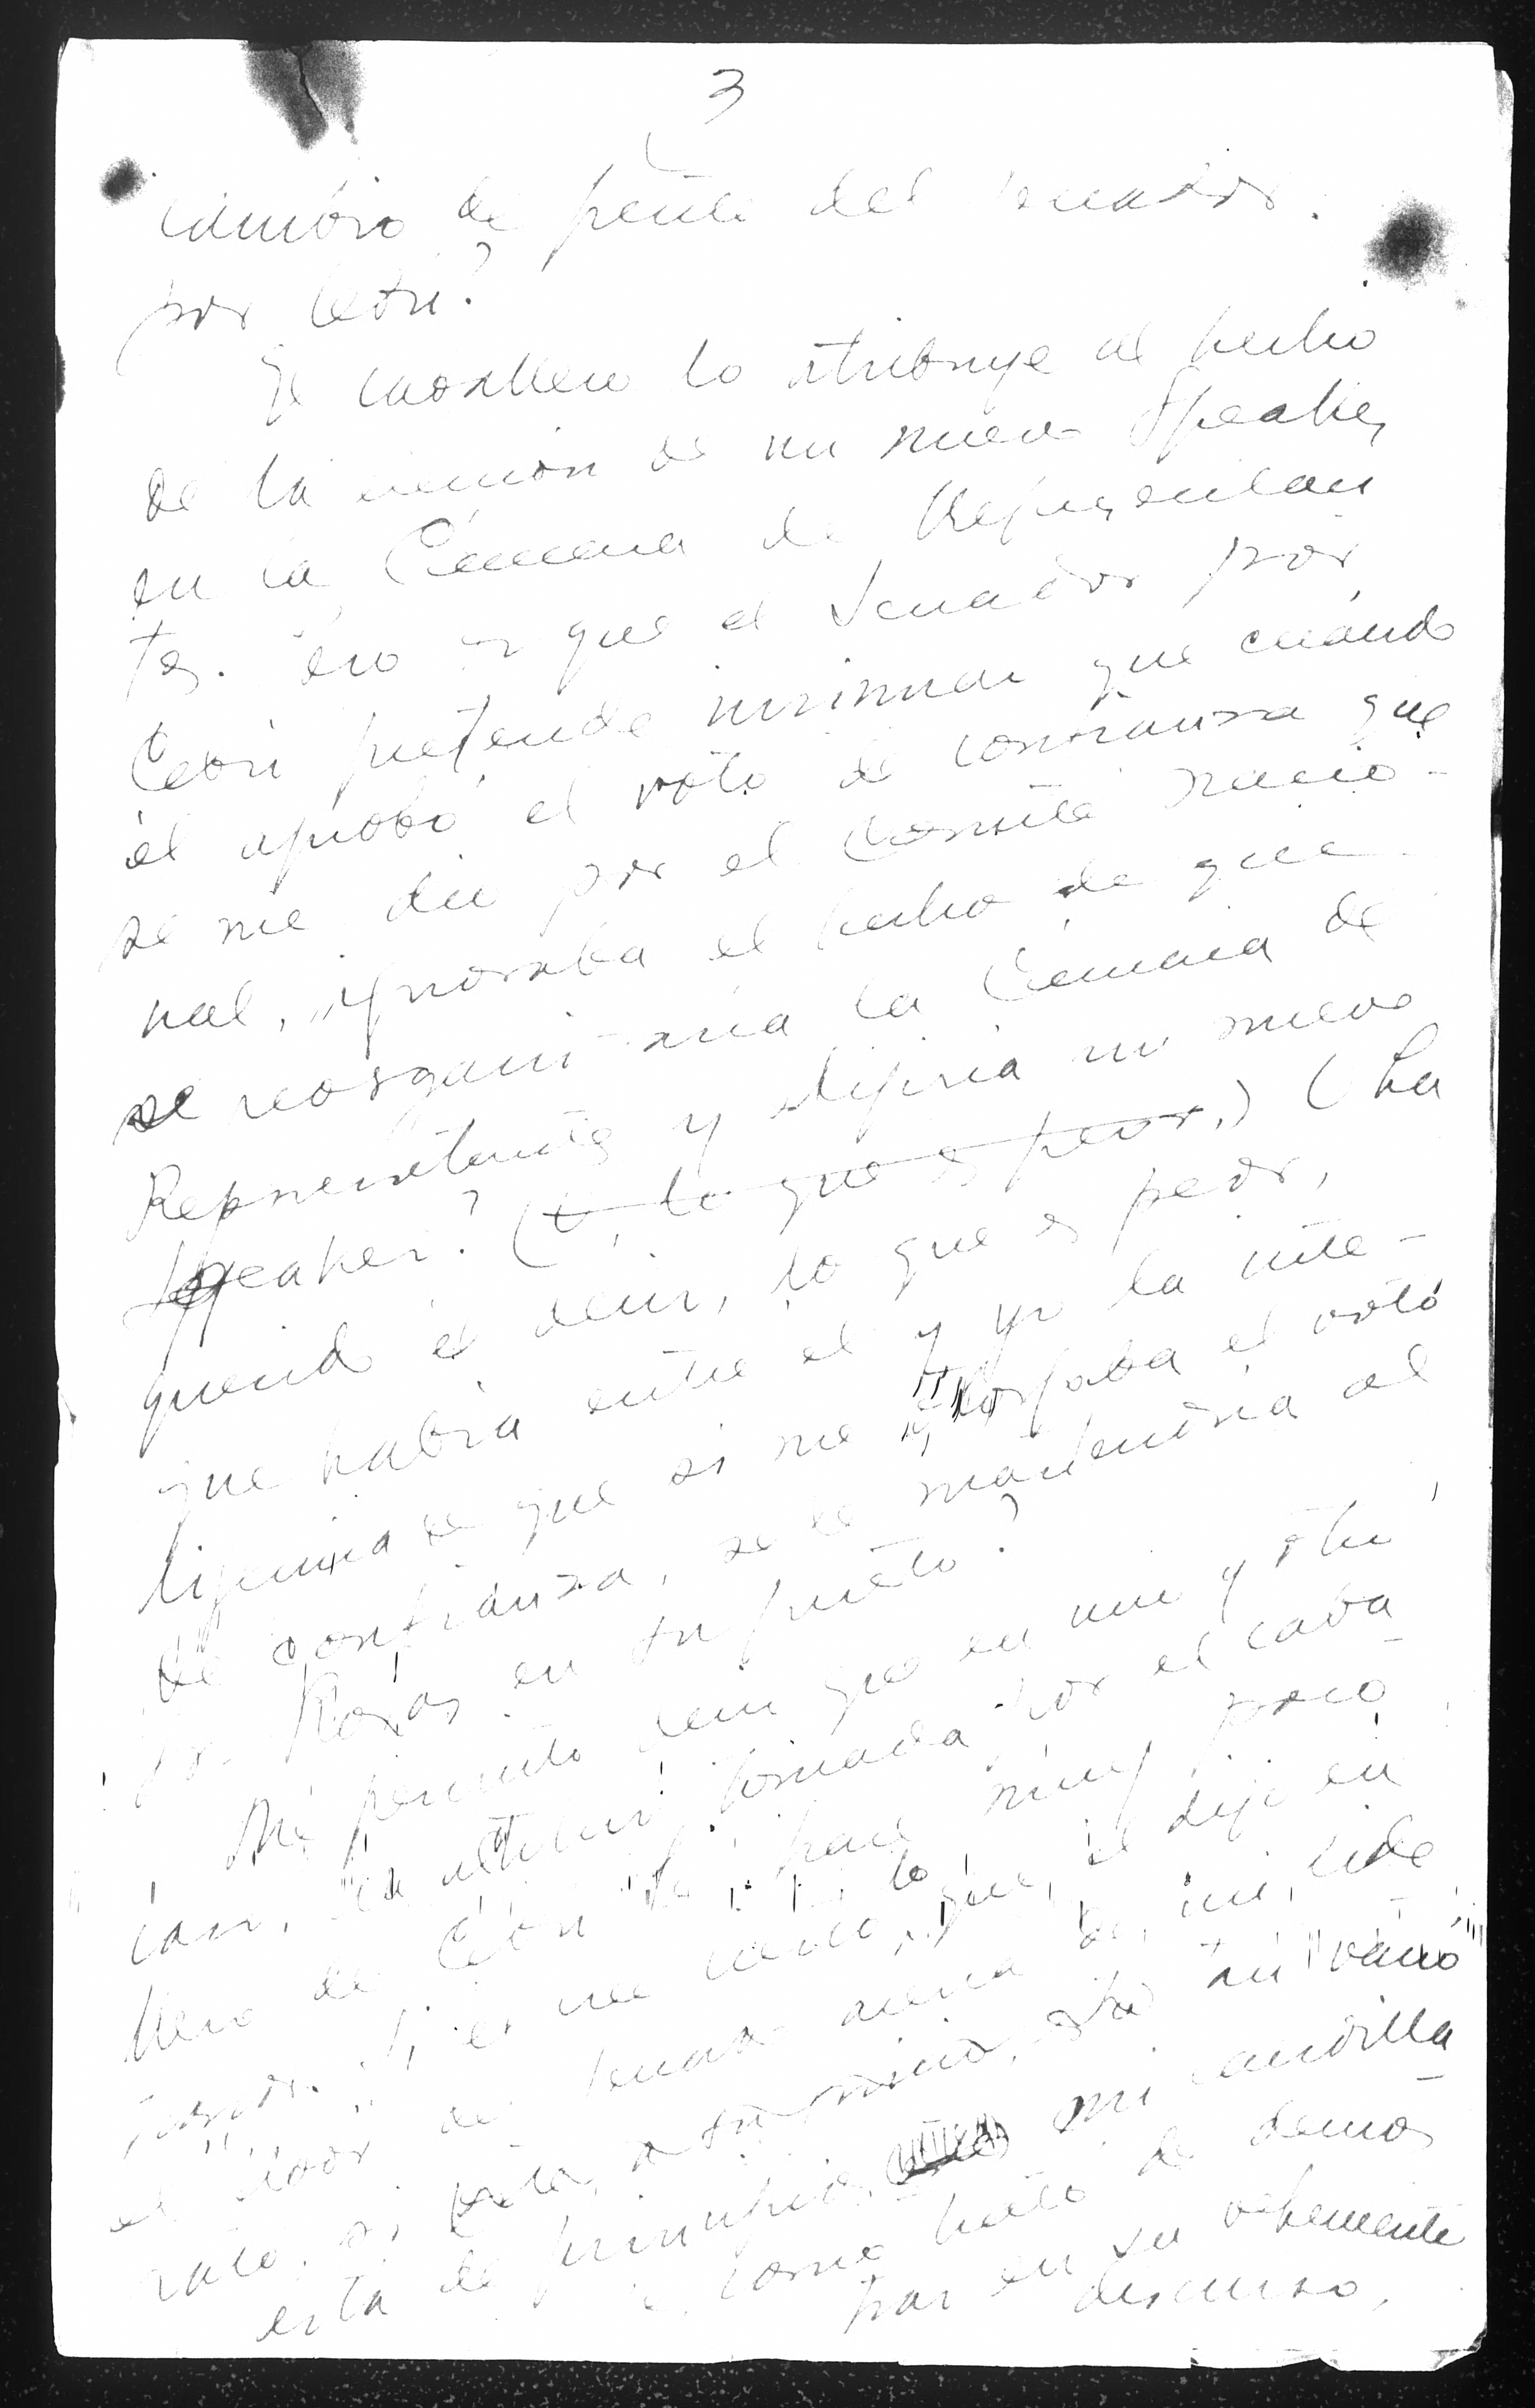 3
cambio de frente del senador
por Cebú?
El caballero lo atribuye al hecho
de la elección de un nuevo Speaker
en la Cámara de Representan
tes. Pero es que el Senador por
Cebú pretende insinuar que cuándo
él aprobó el voto de confianza que
se me dió por el Comité nacio-
nal, ignoraba el hecho de que
se reorganizaría la Cámara de
Representantes y elijiria un nuevo
Speaker? (O, lo que es peor,) (Ha
querido el decir, lo que es peor,
que habia entre el y yo la inte-
ligencia de que si me otorgaba el voto
de confianza, se le mantendria al
Sr. Roxas en su puesto?
Me permito decir que en uno y otro
caso, la actitud tomada por el caba-
llero de Cebú le hace muy poco
favor. Si es verdad, lo que, el dijo en
el de acerca de mi, este
rato, si está a su
está de principios, mi camarilla
como trató de demos-
trar en su vehemente
discurso,